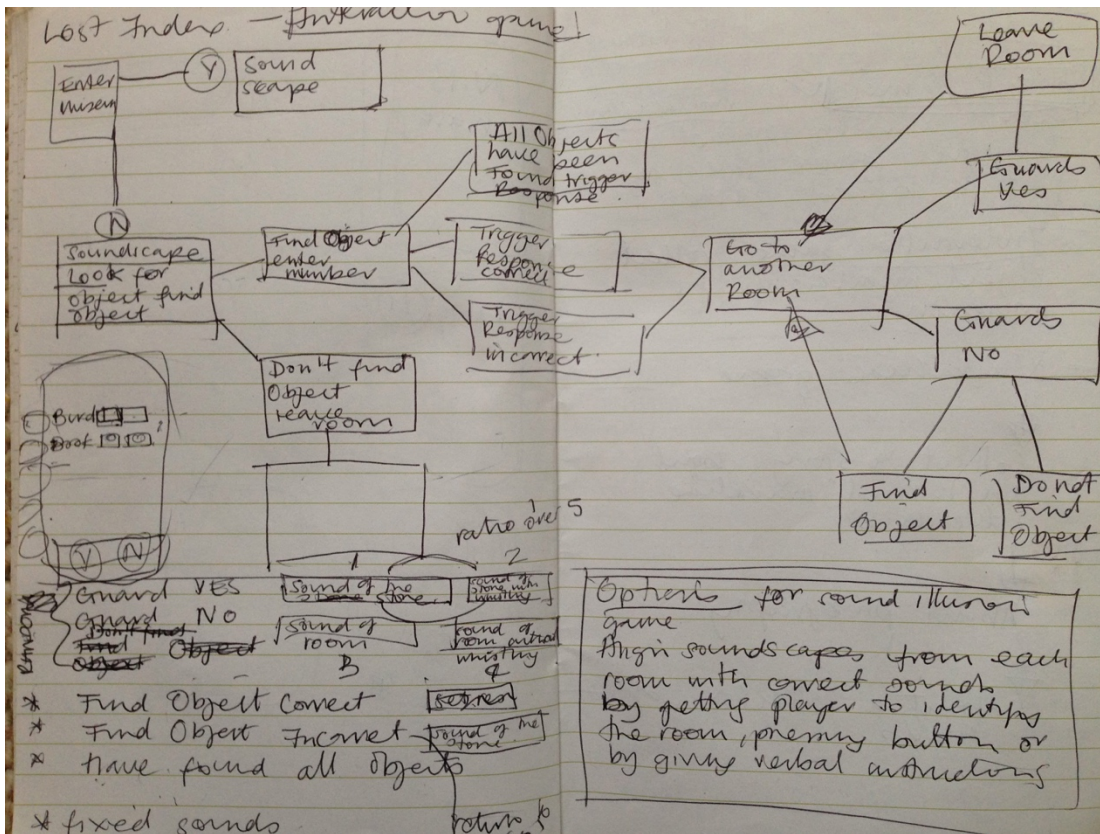 Lost Index — Interactive game!
Enter
museum
Y
Sound
scape
N
Soundscape
Look for
object find
object
Find Object
enter
number
All Objects
have been
Found trigger
Response
Trigger
Response
correct
Trigger
Response
incorrect
Don't find
Object
leave
room
Go to
another
Room
Leave
Room
Guards
Yes
Guards
No
Find
Object
Do not
Find
Object
Bird
Book
Y N
ratio over 5
1
2
Guard YES
Sound of the
stone
sound of
stone with
whistling
Guard NO
sound of
room
3
sound of
room
whistling
4
Don't find
Find
Object
Object
* Find Object Correct
* Find Object Incorrect
sound of the
stone
* have found all objects
* fixed sounds
return
Options for sound illusion
game
Align soundscapes from each
room with correct sounds
by getting player to identify
the room, pressing button or
by giving verbal instructions